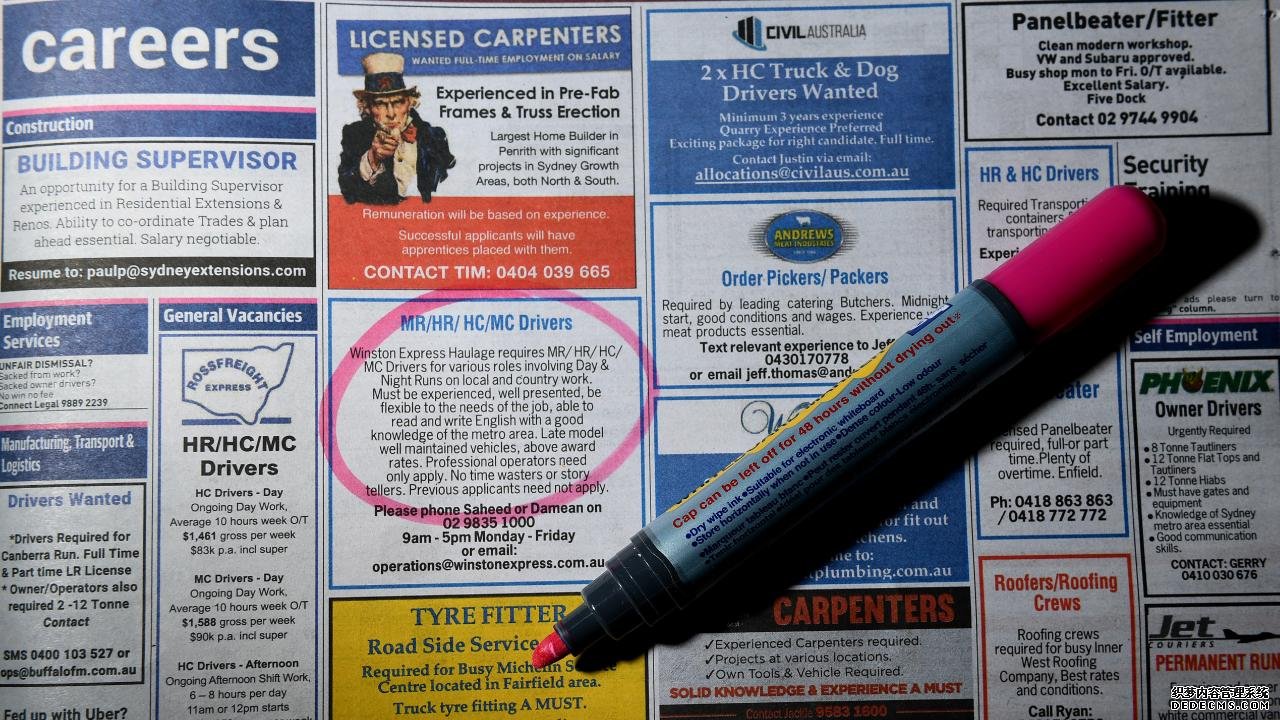 careers
Construction
BUILDING SUPERVISOR
An opportunity for a Building Supervisor
experienced in Residential Extensions &
Renos. Ability to co-ordinate Trades & plan
ahead essential. Salary negotiable.
Resume to: paulp@sydneyextensions.com
Employment
Services
UNFAIR DISMISSAL?
Sacked from work?
Sacked owner drivers?
No win no fee
Connect Legal 9889 2239
Manufacturing, Transport &
Logistics
Drivers Wanted
Drivers Required for
Canberra Run. Full Time
& Part time LR License
* Owner/Operators also
required 2 -12 Tonne
Contact
SMS 0400 103 527 or
ops@buffalofm.com.au
General Vacancies
ROSSFREIGHT
EXPRESS
HR/HC/MC
Drivers
HC Drivers - Day
Ongoing Day Work,
Average 10 hours week O/T
$1,461 gross per week
$83k p.a. incl super
MC Drivers - Day
Ongoing Day Work,
Average 10 hours week O/T
$1,588 gross per week
$90k p.a. incl super
HC Drivers - Afternoon
Ongoing Afternoon Shift Work,
6 – 8 hours per day
11am or 12pm starts
LICENSED CARPENTERS
WANTED FULL-TIME EMPLOYMENT ON SALARY
Experienced in Pre-Fab
Frames & Truss Erection
Largest Home Builder in
Penrith with significant
projects in Sydney Growth
Areas, both North & South.
Remuneration will be based on experience.
Successful applicants will have
apprentices placed with them.
CONTACT TIM: 0404 039 665
MR/HR/ HC/MC Drivers
Winston Express Haulage requires MR/ HR/ HC/
MC Drivers for various roles involving Day &
Night Runs on local and country work.
Must be experienced, well presented, be
flexible to the needs of the job, able to
read and write English with a good
knowledge of the metro area. Late model
well maintained vehicles, above award
rates. Professional operators need
only apply. No time wasters or story
tellers. Previous applicants need not apply.
Please phone Saheed or Damean on
02 9835 1000
9am - 5pm Monday - Friday
or email:
operations@winstonexpress.com.au
TYRE FITTER
Road Side Service
Required for Busy Michelin
Centre located in Fairfield area.
Truck tyre fitting A MUST.
CIVIL AUSTRALIA
2 x HC Truck & Dog
Drivers Wanted
Minimum 3 years experience
Quarry Experience Preferred
Exciting package for right candidate. Full time.
Contact Justin via email:
allocations@civilaus.com.au
ANDREWS
MEAT INDUSTRIES
Order Pickers/ Packers
Required by leading catering Butchers. Midnight
start, good conditions and wages. Experience
meat products essential.
Text relevant experience to
0430170778
or email
and
for fit out
to:
plumbing.com.au
Cap can be left off for 48 hours without drying out
•Dry wipe ink •Suitable for electronic whiteboard
•Store horizontally when not in use •Dense colour-Low odour
CARPENTERS
✓Experienced Carpenters required.
✓Projects at various locations.
✓Own Tools & Vehicle Required.
SOLID KNOWLEDGE & EXPERIENCE A MUST
Contact Jackie 9583 1600
Panelbeater/Fitter
Clean modern workshop.
VW and Subaru approved.
Busy shop mon to Fri. O/T available.
Excellent Salary.
Five Dock
Contact 02 9744 9904
HR & HC Drivers
Required
containers
Security
Training
ads please turn to
column.
required, full-or part
time.Plenty of
overtime. Enfield.
Ph: 0418 863 863
/ 0418 772 772
Roofers/Roofing
Crews
Roofing crews
required for busy Inner
West Roofing
Company, Best rates
and conditions.
Call Ryan:
Self Employment
PHOENIX
Owner Drivers
Urgently Required
• 8 Tonne Tautliners
• 12 Tonne Flat Tops and
Tautliners
• 12 Tonne Hiabs
• Must have gates and
equipment
• Knowledge of Sydney
metro area essential
• Good communication
skills.
CONTACT: GERRY
0410 030 676
Jet
COURIERS
PERMANENT RUN
织梦内容管理系统
DEDECMS.COM